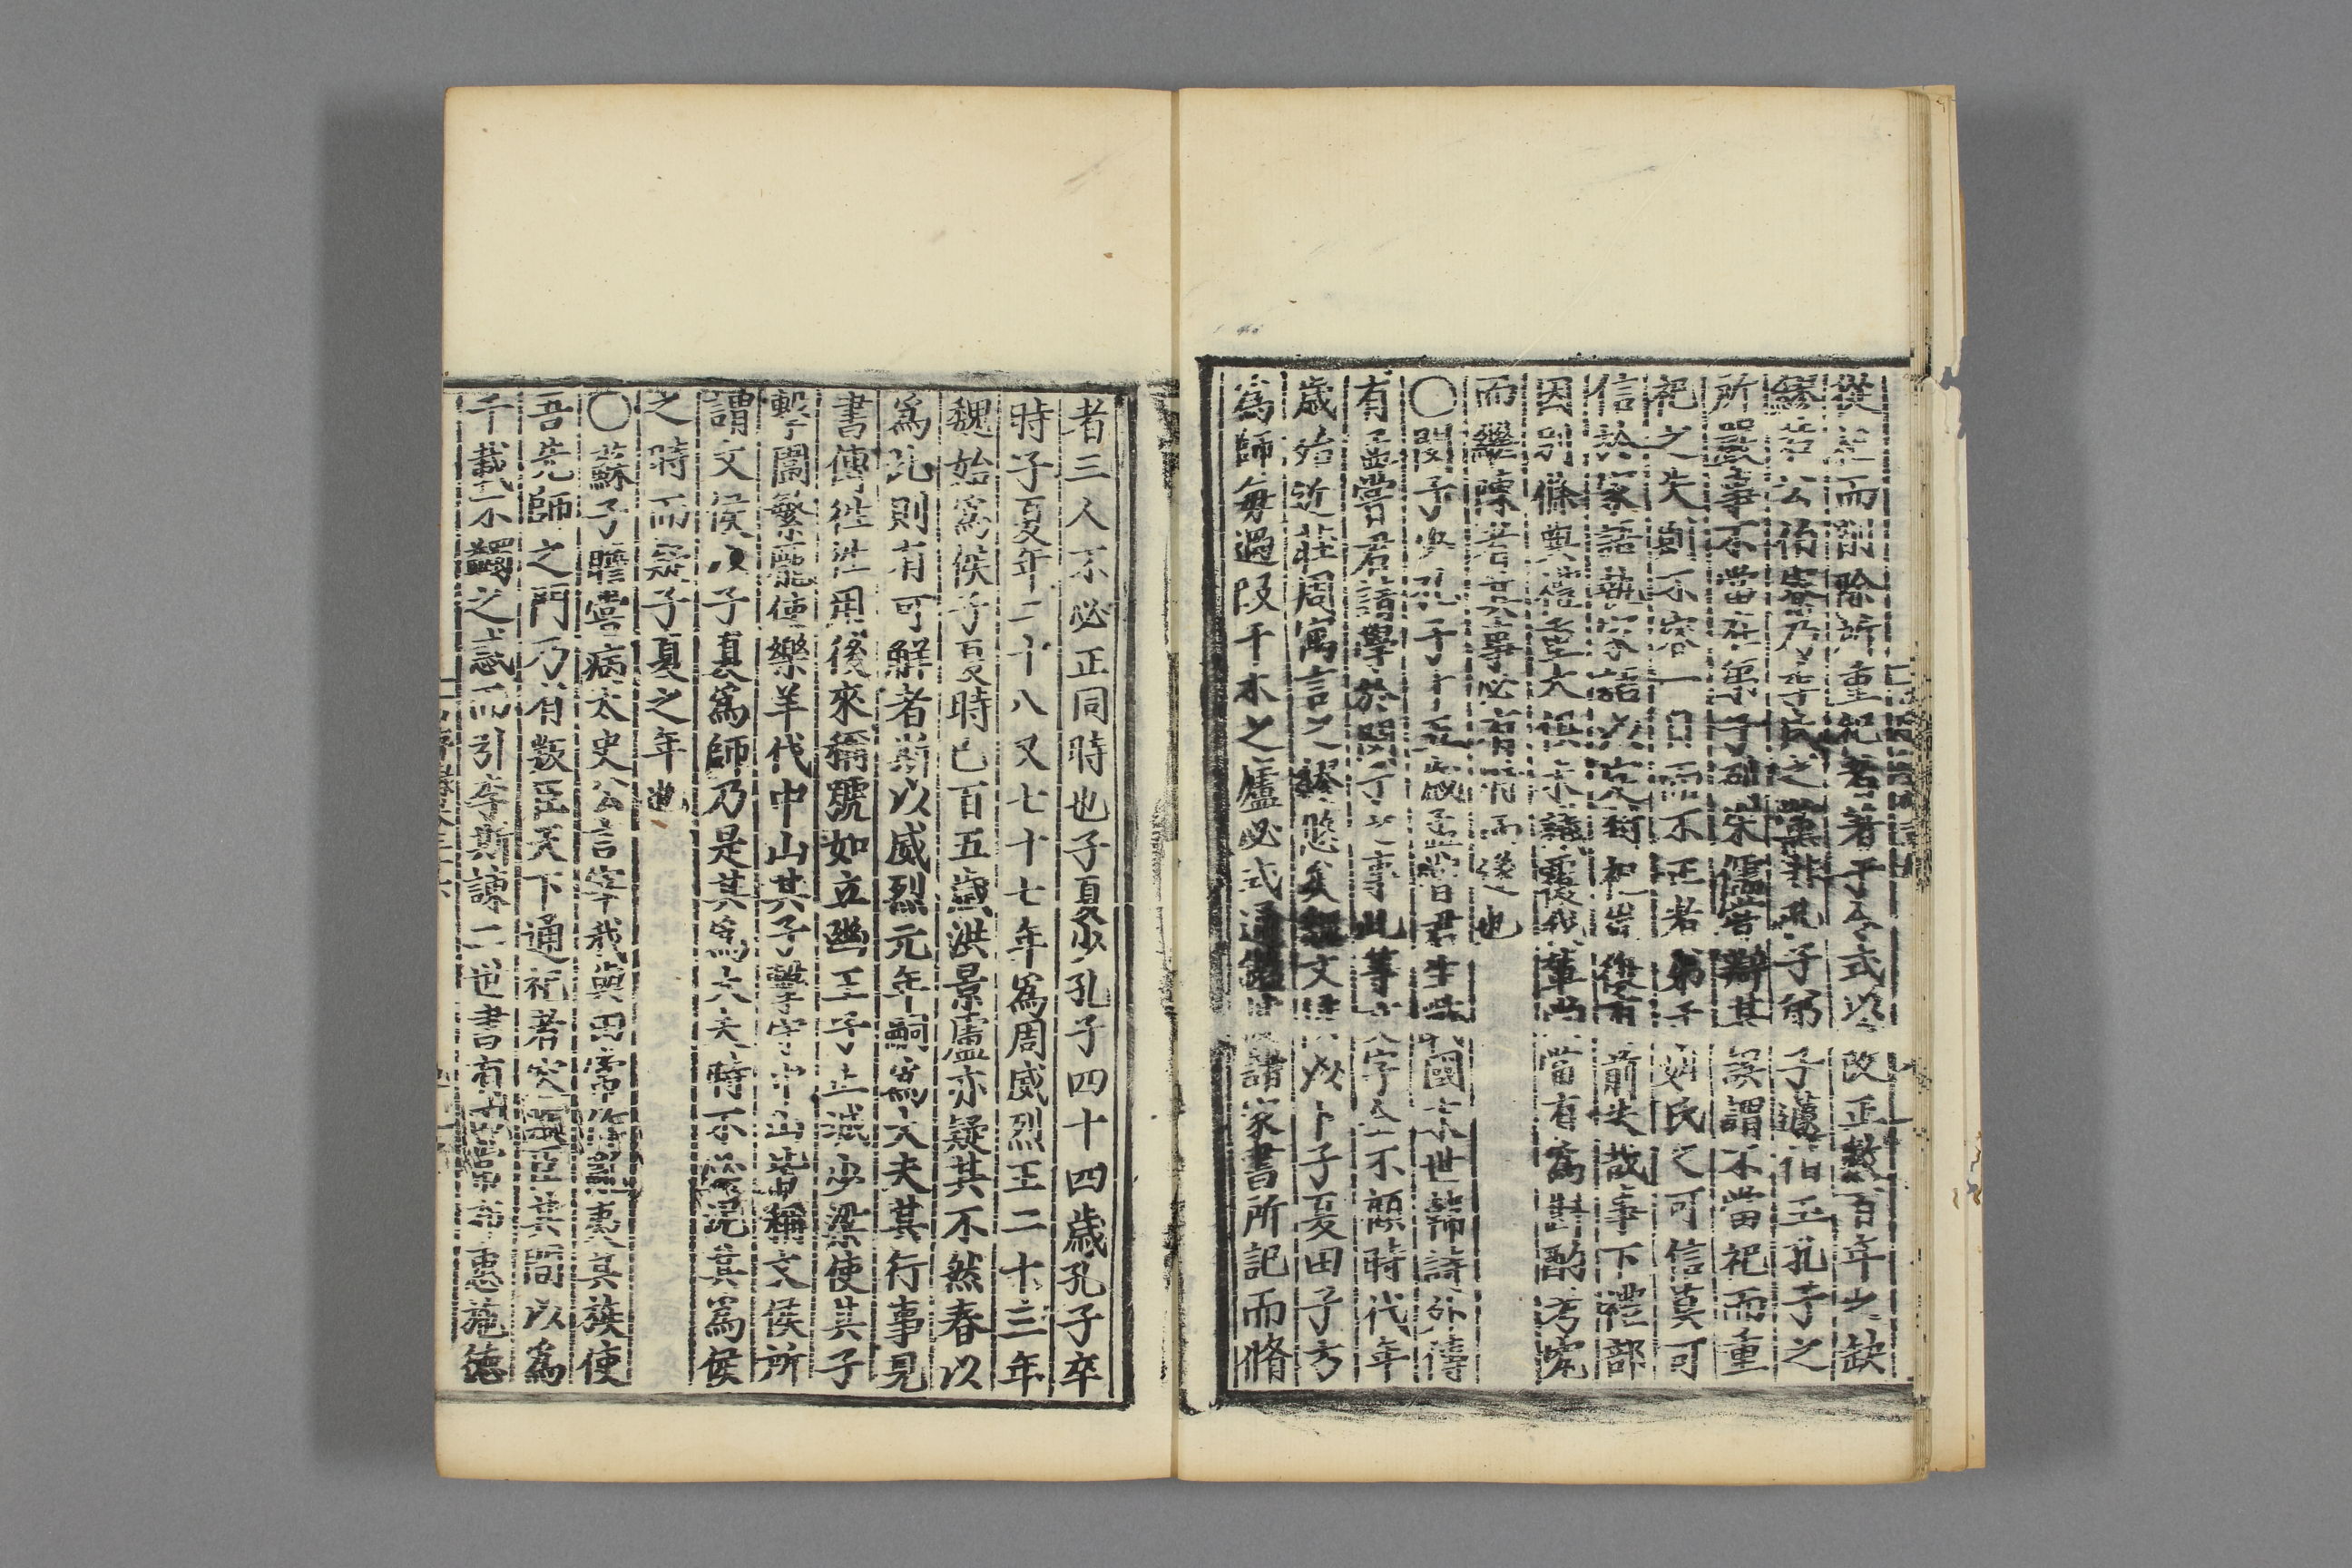 從祀而削除所重祀者著于令式以改正數百年少缺
公伯寮乃季氏之黨非孔子弟子蘧伯玉孔子之
所嚴事不當在弟子列宋儒嘗辯其誤謂不當祀而重
祀之失則不容一日而不正者弟子
氏之可信莫可
信於家語執家語以定從祀豈復有前失哉事下禮部
因別條典禮重大俱未議覆後我輩尚當有為斟酌考究
而繼陳者其事必有所而後也
〇閔子少孔子十五歲孟嘗君生戰國末世韓詩外傳
有孟嘗君請學於閔子之事此等文字全不顧時代年
歲殆近莊周寓言之謬悠矣魏文侯以卜子夏田子方
為師每過段干木之廬必式通鑑諸家書所記而脩
者三人不必正同時也子夏少孔子四十四歲孔子卒
時子夏年二十八又七十七年為周威烈王二十三年
魏始為侯子夏時已百五歲洪景盧亦疑其不然春以
為此則有可解者斯以威烈元年嗣為大夫其行事見
書傳徃徃用後來稱號如立幽王子止滅少梁使其子
擊圍繁龐使樂羊代中山其子擊守中山皆稱文侯所
謂文侯以子夏為師乃是其為大夫時不必況其為侯
之時而疑子夏之年也
〇蘇子瞻嘗病太史公言宰我與田常作亂夷其族使
吾先師之門乃有叛臣天下通祀者容叛臣其間以為
千載不蠲之惑而引李斯諫二世書有田常為簡公臣布惠施德